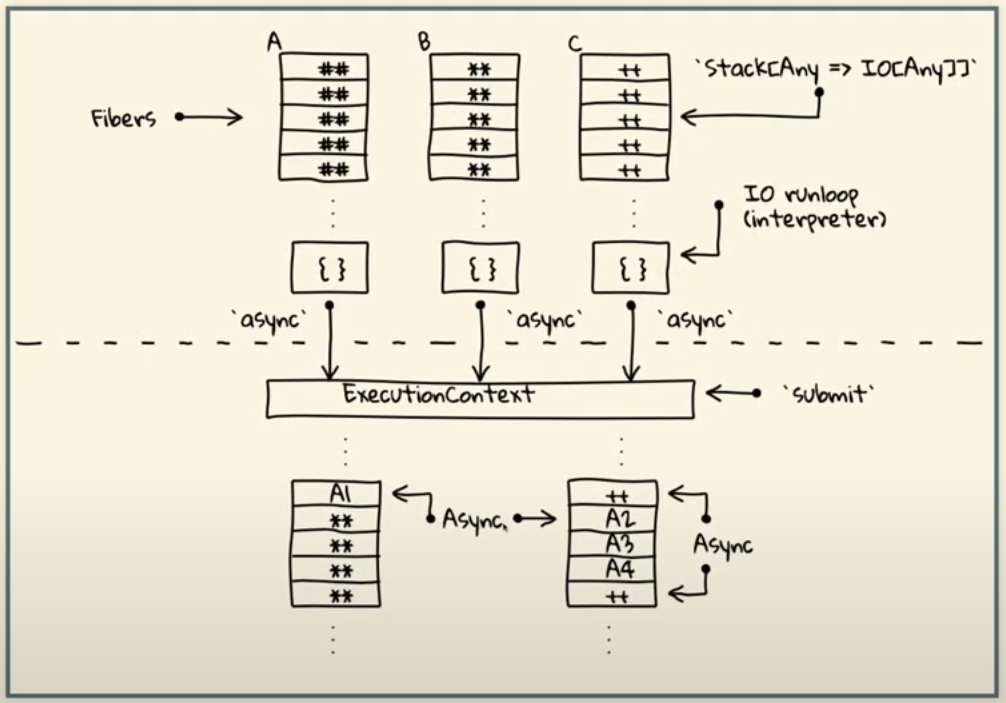 A
B
C
##
##
##
##
##
**
**
**
**
**
++
++
++
++
++
`Stack[Any => IO[Any]]`
Fibers
IO runloop
(interpreter)
{ }
{ }
{ }
`async`
`async`
`async`
ExecutionContext
`submit`
A1
**
**
**
**
Async
++
A2
A3
A4
++
Async